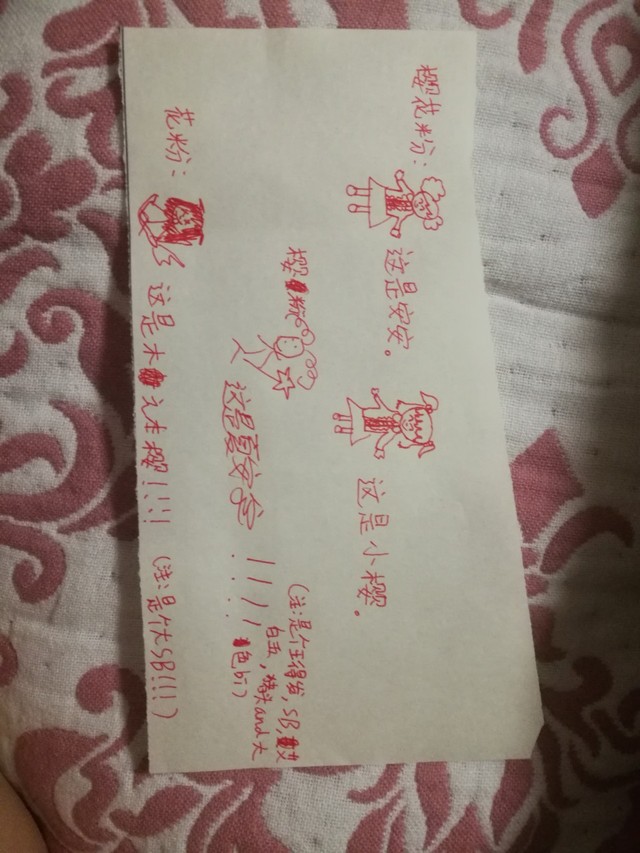 樱花粉：
这是安安。
这是小樱。
樱粉
这是夏安安！！！！
（注：是个王得发，SB，
白五，猪头and大
色bī）
花粉：
这是木之本樱！！！！（注：是个大SB!!!）